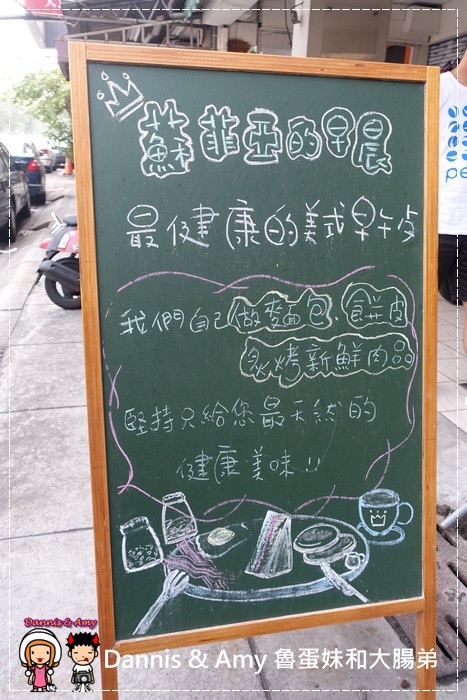 蘇菲亞的早晨
最健康的美式早午皮
我們自己做麵包、餅皮
炙烤新鮮肉品
堅持只給您最天然的
健康美味
pe
Dannis & Amy
Dannis & Amy 魯蛋妹和大腸弟